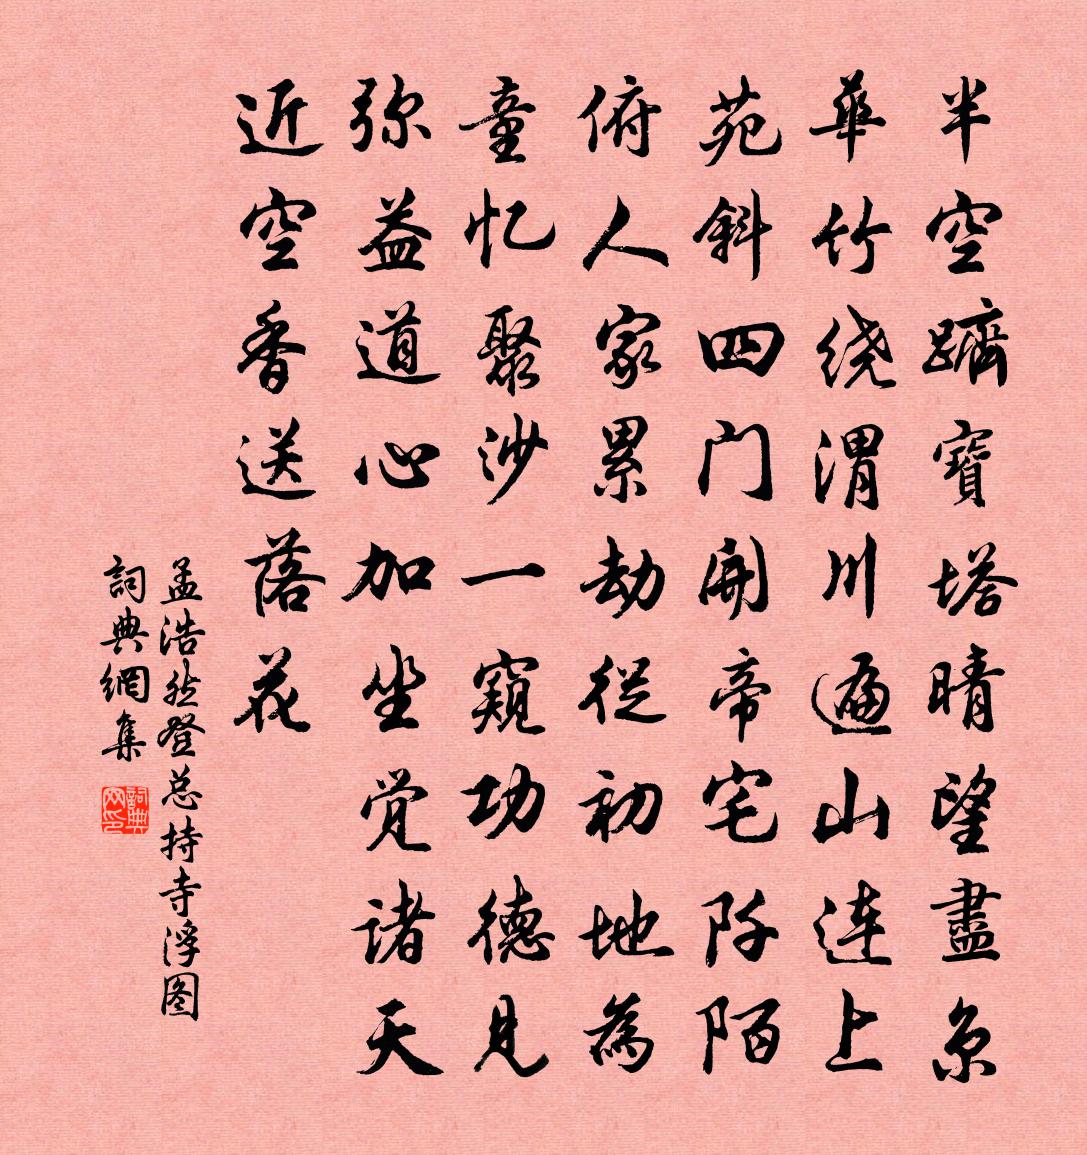 半空躋寶塔晴望盡京
華竹绕渭川遍山连上
苑斜四门开帝宅阡陌
俯人家累劫从初地為
童忆聚沙一窥功德见
弥益道心加坐觉诸天
近空香送落花
孟浩然登总持寺浮图
詞典網集
詞典网印